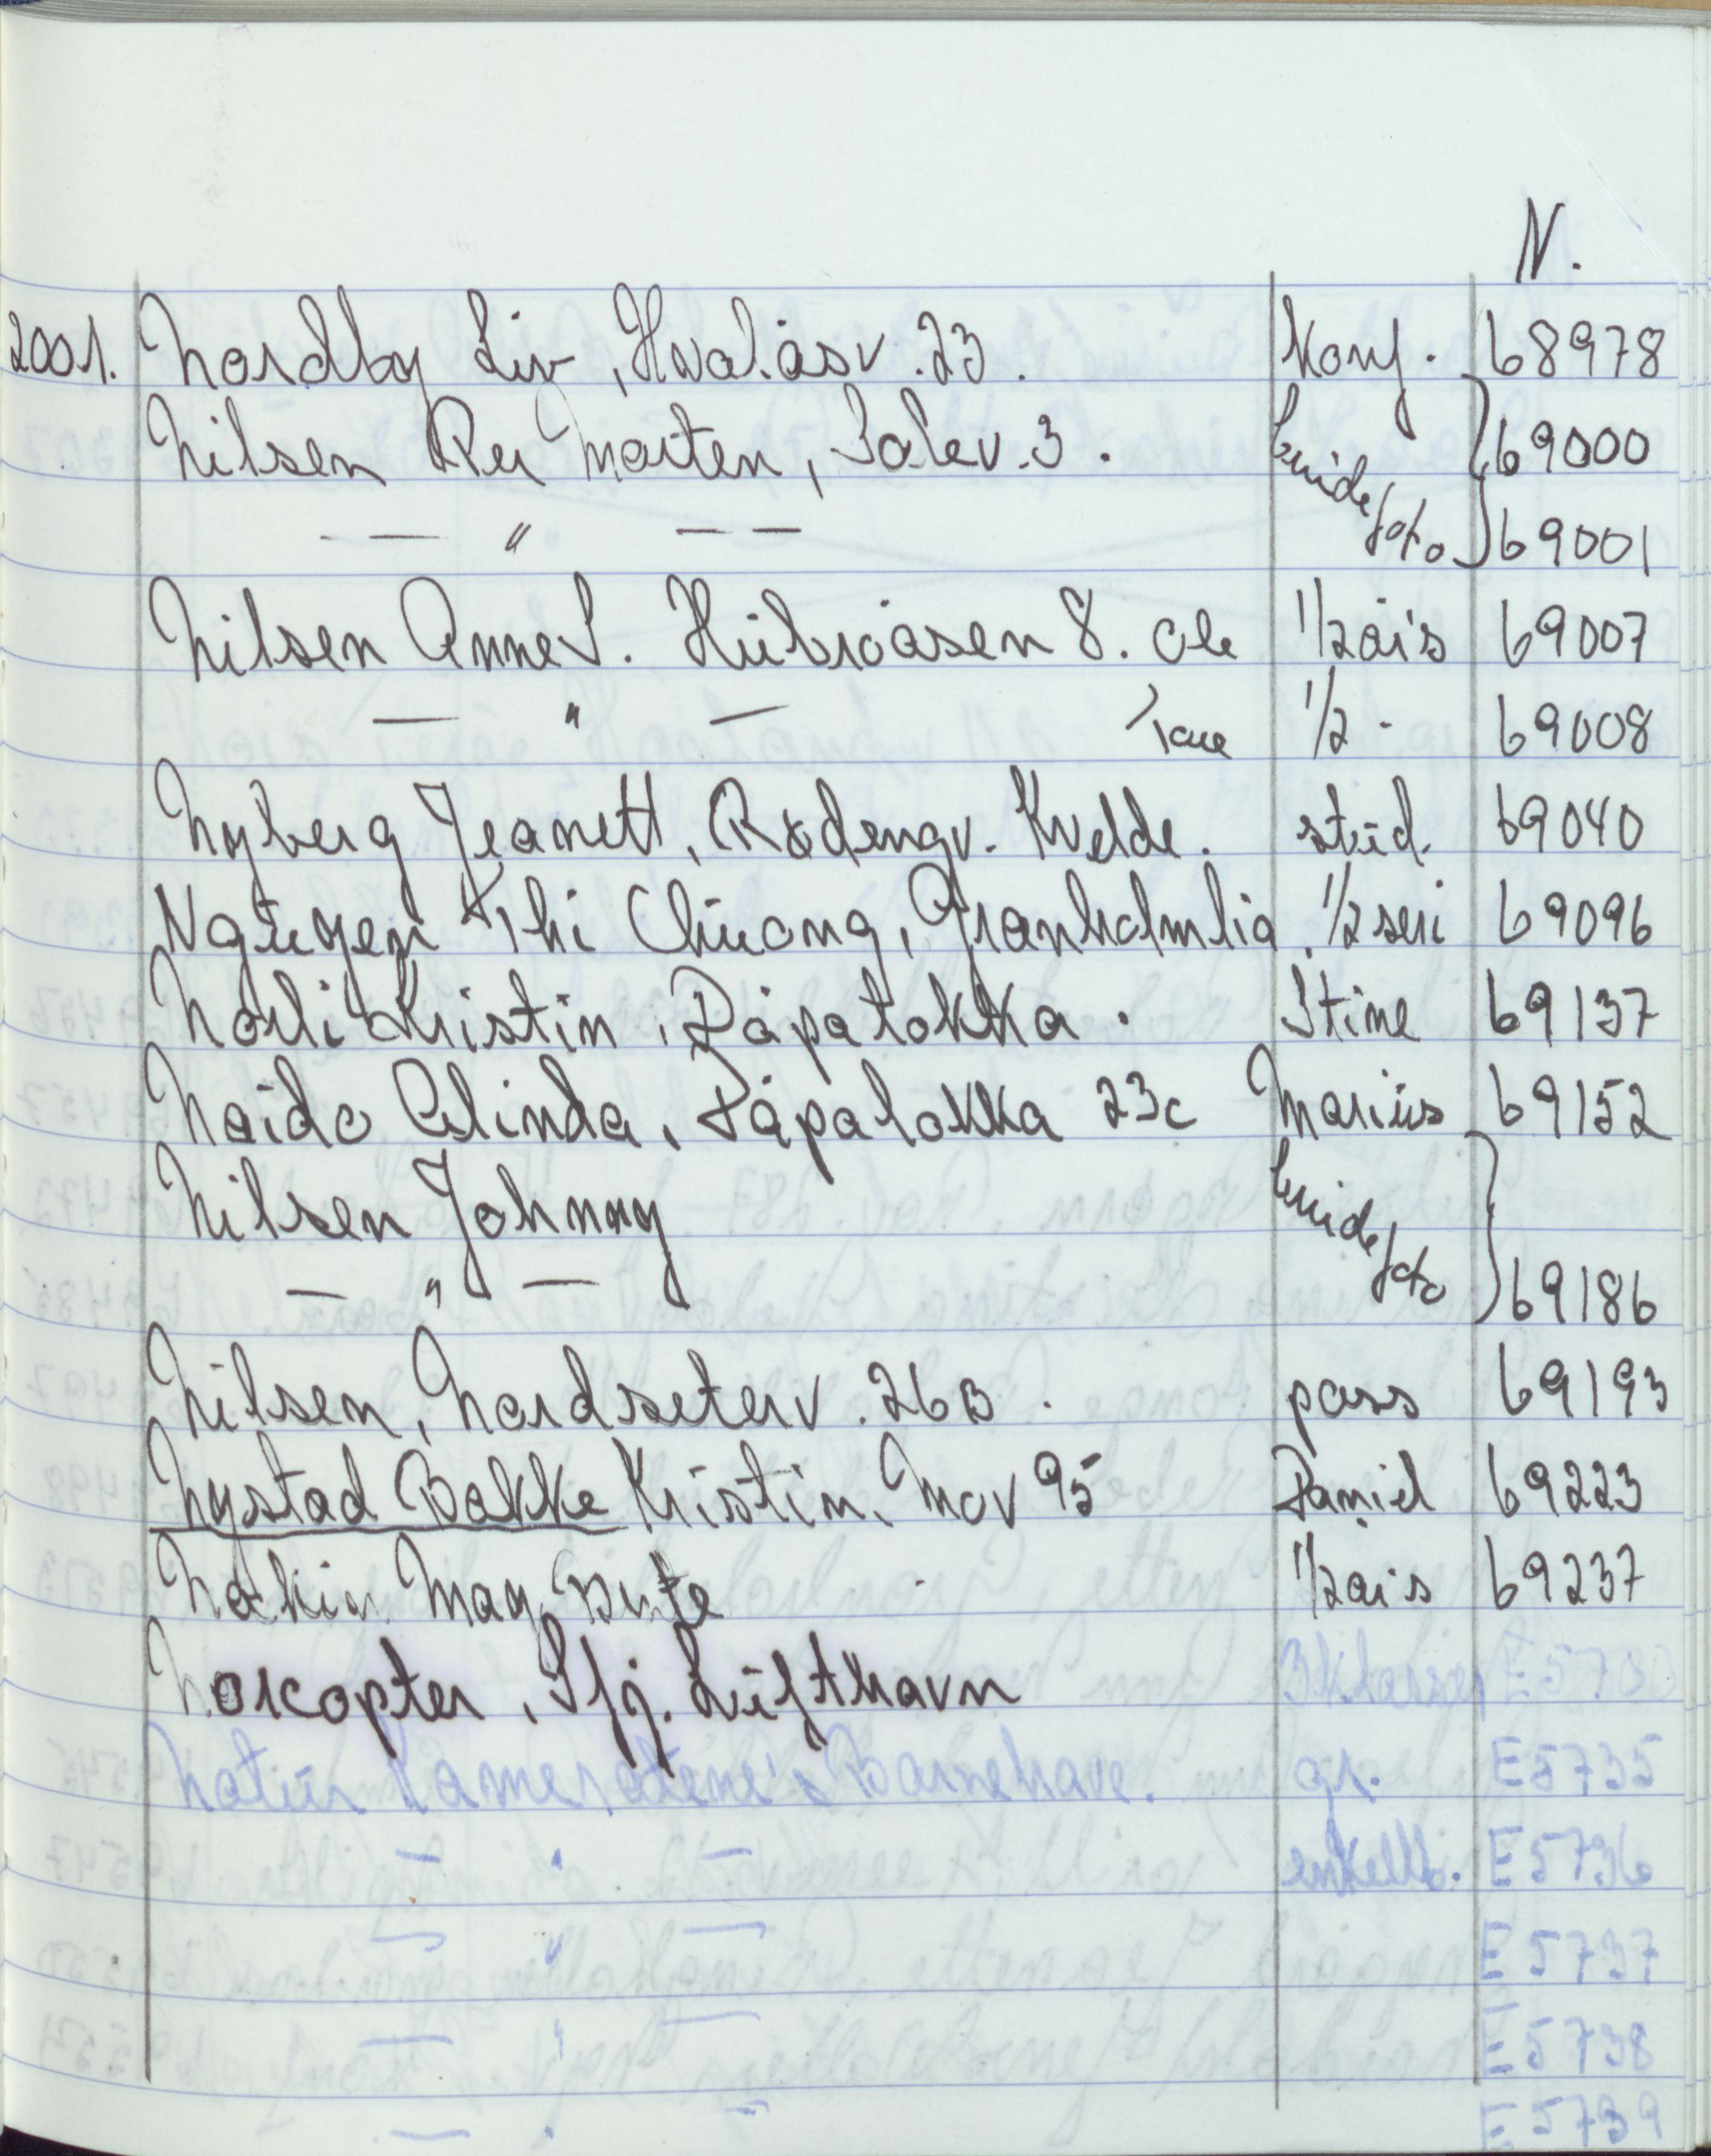 N.
2001. Nordby Liv, Hvalåsv. 23. Konf. 68978
Nilsen Per Morten, Solev. 3. brude 69000
— " — — foto 69001
Nilsen Anne S. Hübroåsen 8. Ole 1/2 års 69007
— " — Tove 1/2 - 69008
Nyberg Jeanett, Rødengv. Kvelde. stüd. 69040
Ngüyen Thi Chüong, Granholmlia. 1/2 seri 69096
Norli Kristin, Dåpaløkka. Stine 69137
Naido Celinda, Dåpaløkka 23c Mariüs 69152
Nilsen Johnny brude
— " — foto 69186
Nilsen, Nordseterv. 26B. pass 69193
Nystad Bakke Kristin, Mov 95 Daniel 69223
May Bente 1/2 års 69237
Norcopter, Sfj. Lüfthavn 3 klasser E5730
Natür Kameratene's Barnehave. gr. E5735
— " — enkeltb. E5736
— " — E5737
— " — E5738
— " — E5739